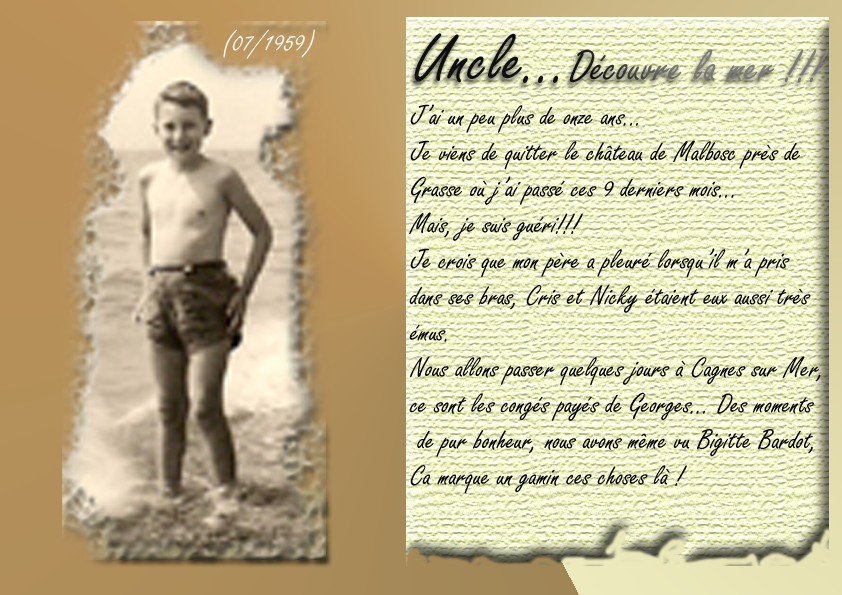 (07/1959)
Uncle... Découvre la mer !!!
J'ai un peu plus de onze ans...
Je viens de quitter le château de Malbosc près de
Grasse où j'ai passé ces 9 derniers mois...
Mais, je suis guéri!!!
Je crois que mon père a pleuré lorsqu'il m'a pris
dans ses bras, Cris et Nicky étaient eux aussi très
émus.
Nous allons passer quelques jours à Cagnes sur Mer,
ce sont les congés payés de Georges... Des moments
de pur bonheur, nous avons même vu Bigitte Bardot,
Ca marque un gamin ces choses là !